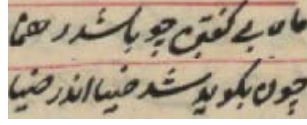 ماه بی گفتن چو باشد رهنما
چون بگوید شد ضیا اندر ضیا